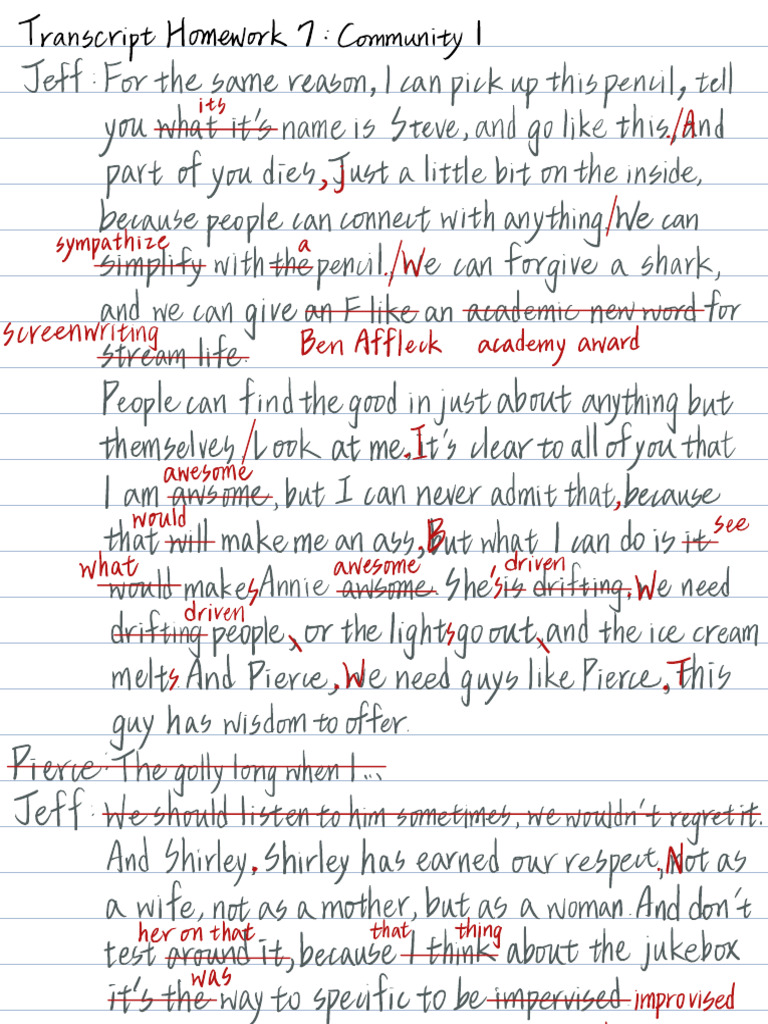 Transcript Homework 7: Community 1
Jeff: For the same reason, I can pick up this pencil, tell
its
you what it's name is Steve, and go like this./And
part of you dies, Just a little bit on the inside,
because people can connect with anything/We can
sympathize a
simplify with the pencil./We can forgive a shark,
and we can give an F like an academic new word for
screenwriting Ben Affleck academy award
stream life.
People can find the good in just about anything but
themselves/Look at me. It's clear to all of you that
awesome
I am awsome, but I can never admit that, because
would
that will make me an ass, But what I can do is it see
what awesome driven
would makes Annie awsome. She's is drifting. We need
driven
drifting people, or the lights go out, and the ice cream
melts And Pierce, We need guys like Pierce. This
guy has wisdom to offer.
Pierce: The golly long when I...
Jeff: We should listen to him sometimes, we wouldn't regret it.
And Shirley. Shirley has earned our respect, Not as
a wife, not as a mother, but as a woman. And don't
her on that that thing
test around it, because I think about the jukebox
was
it's the way to specific to be impervised improvised